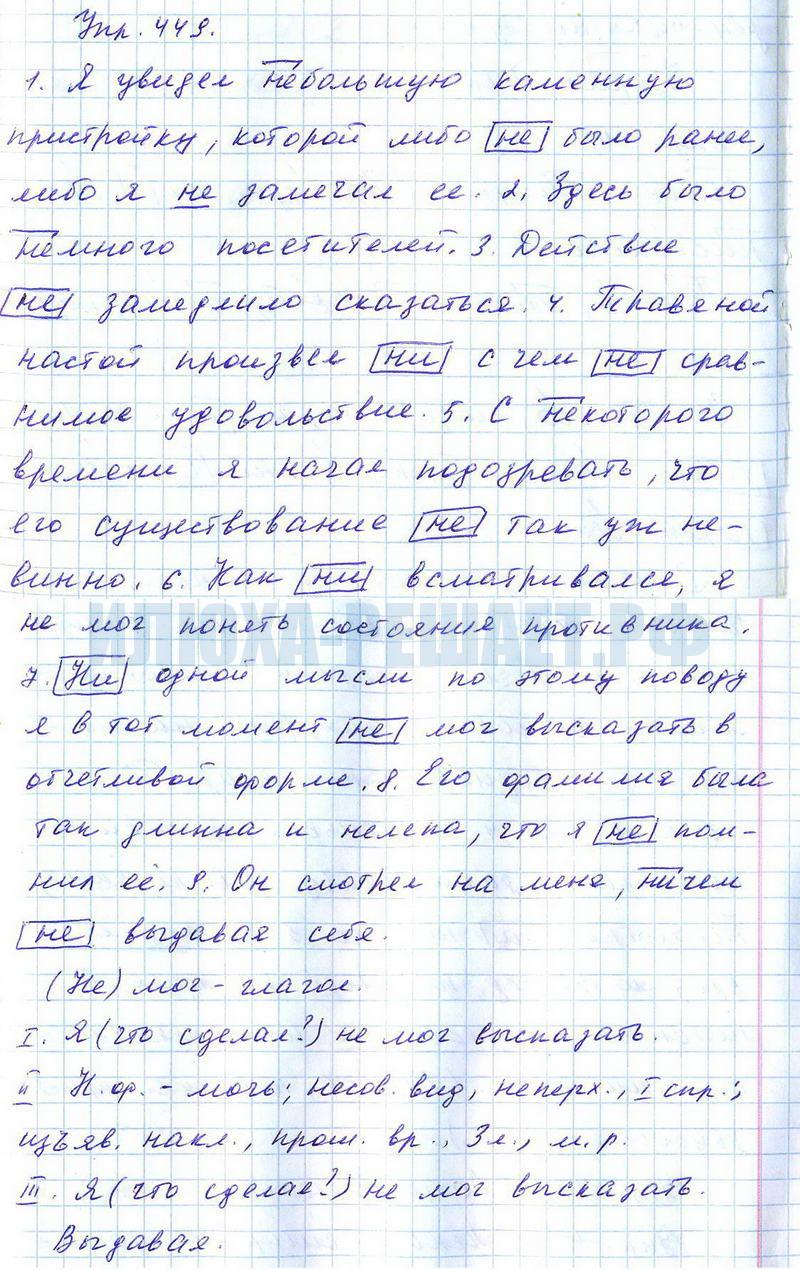 Упр. 449.
1. Я увидел небольшую каменную
пристройку, которой либо не было ранее,
либо я не замечал ее. 2. Здесь было
немного посетителей. 3. Действие
не замедлило сказаться. 4. Травяной
настой произвел ни с чем не срав-
нимое удовольствие. 5. С некоторого
времени я начал подозревать, что
его существование не так уж не-
винно. 6. Как ни всматривался, я
не мог понять состояния противника.
ИЛЮХА-РЕШАЕТ.РФ
7. Ни одной мысли по этому поводу
я в тот момент не мог высказать в
отчетливой форме. 8. Его фамилия была
так длинна и нелепа, что я не пом-
нил её. 9. Он смотрел на меня, ничем
не выдавая себя.
(Не) мог - глагол.
I. Я (что сделал?) не мог высказать.
II Н.ф. - мочь; несов. вид, неперх., I спр.;
изъяв. накл., прош. вр., 3 л., м.р.
III. Я (что сделал?) не мог высказать.
Выдавая.